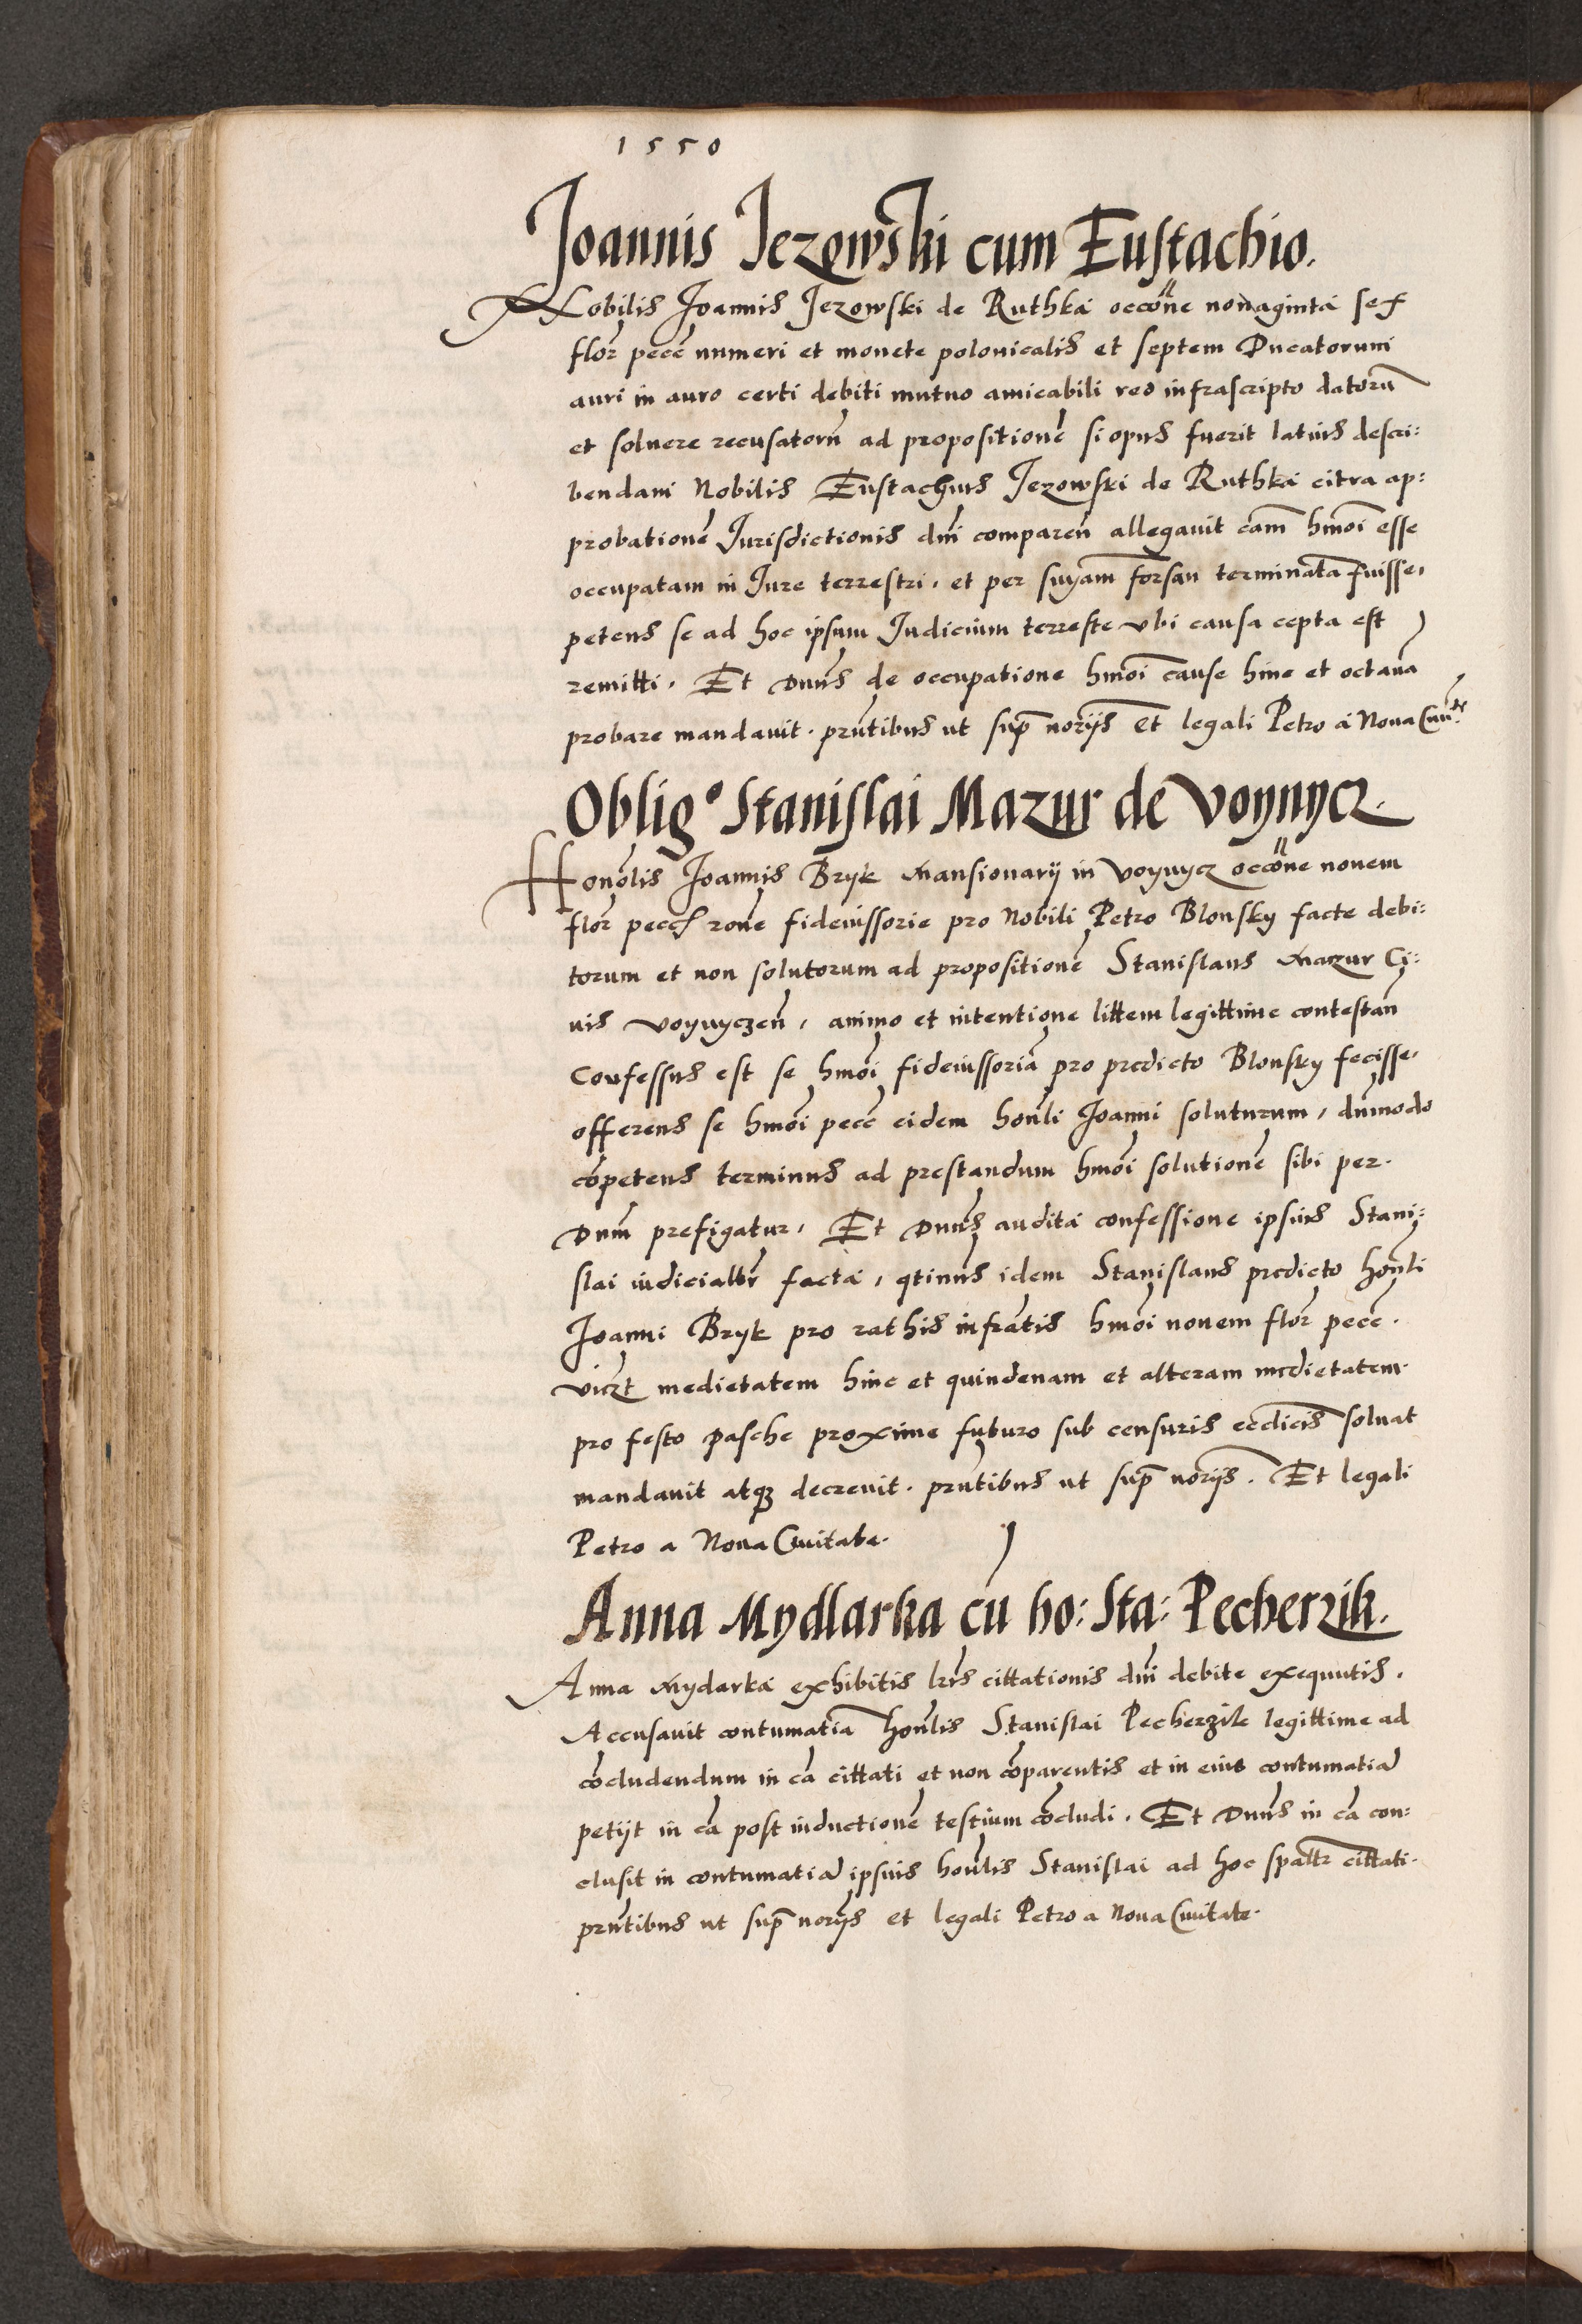 1550
Joannis Jezowski cum Eustachio.
Nobilis Joannis Jezowski de Ruthka occõne nonaginta sex
flor̃ pecc̃ numeri et monete polonicalis et septem Ducatorum
auri in auro certi debiti mutuo amicabili reo infrascripto datorũ
et soluere recusatorũ ad propositionẽ si opus fuerit latius descri:
bendam Nobilis Eustachius Jezowski de Ruthka citra ap:
probationẽ Jurisdictionis dni comparen̄ allegauit cam̄ hmõi esse
occupatam in Jure terrestri, et per suam forsan terminatã fuisse,
petens se ad hoc ipsum Judicium terreste vbi causa cepta est
remitti. Et Dnus de occupatione hmõi cause hinc et octauã
probare mandauit. prñtibus ut sup̃ norijs et legali Petro a Noua Ciuite
Oblig° Stanislai Mazur de Voynycz.
Honõlis Joannis Bryk Mansionarij in Voynycz occõne nouem
flor̃ pecc̃ rone fideiussorie pro Nobili Petro Blonsky facte debi:
torum et non solutorum ad propositionẽ Stanislaus Mazur Ci:
uis Voynyczen̄, animo et intentione littem legittime contestan̄
Confessus est se hmõi fideiussoriã pro predicto Blonsky fecisse,
offerens se hmõi pecc̃ eidem honli Joanni soluturum, dũmodo
cõpetens terminus ad prestandum hmõi solutionẽ sibi per
Dnm prefigatur, Et Dnus audita confessione ipsius Stani:
slai iudicialtr̃ facta, qtinus idem Stanislaus predicto honli
Joanni Bryk pro rathis infrãtis hmõi nouem flor̃ pecc̃.
viczt medietatem hinc et quindenam et alteram medietatem
pro festo Pasche proxime futuro sub censuris ecclicis soluat
mandauit atq3 decreuit. prñtibus ut sup̃ norijs. Et legali
Petro a Noua Ciuitate.
Anna Mydlarka cũ ho: Sta: Pecherzik.
Anna Mydarka exhibitis lris cittationis dni debite exequutis.
Accusauit contumatiã honlis Stanislai Pecherzik legittime ad
cõcludendum in cã cittati et non cõparentis et in eius contumatiã
petijt in cã post inductionẽ testium cõcludi. Et Dnus in cã con:
clusit in contumatiã ipsius honlis Stanislai ad hoc spaltr̃ cittati.
prñtibus ut sup̃ norijs et legali Petro a Noua Ciuitate.